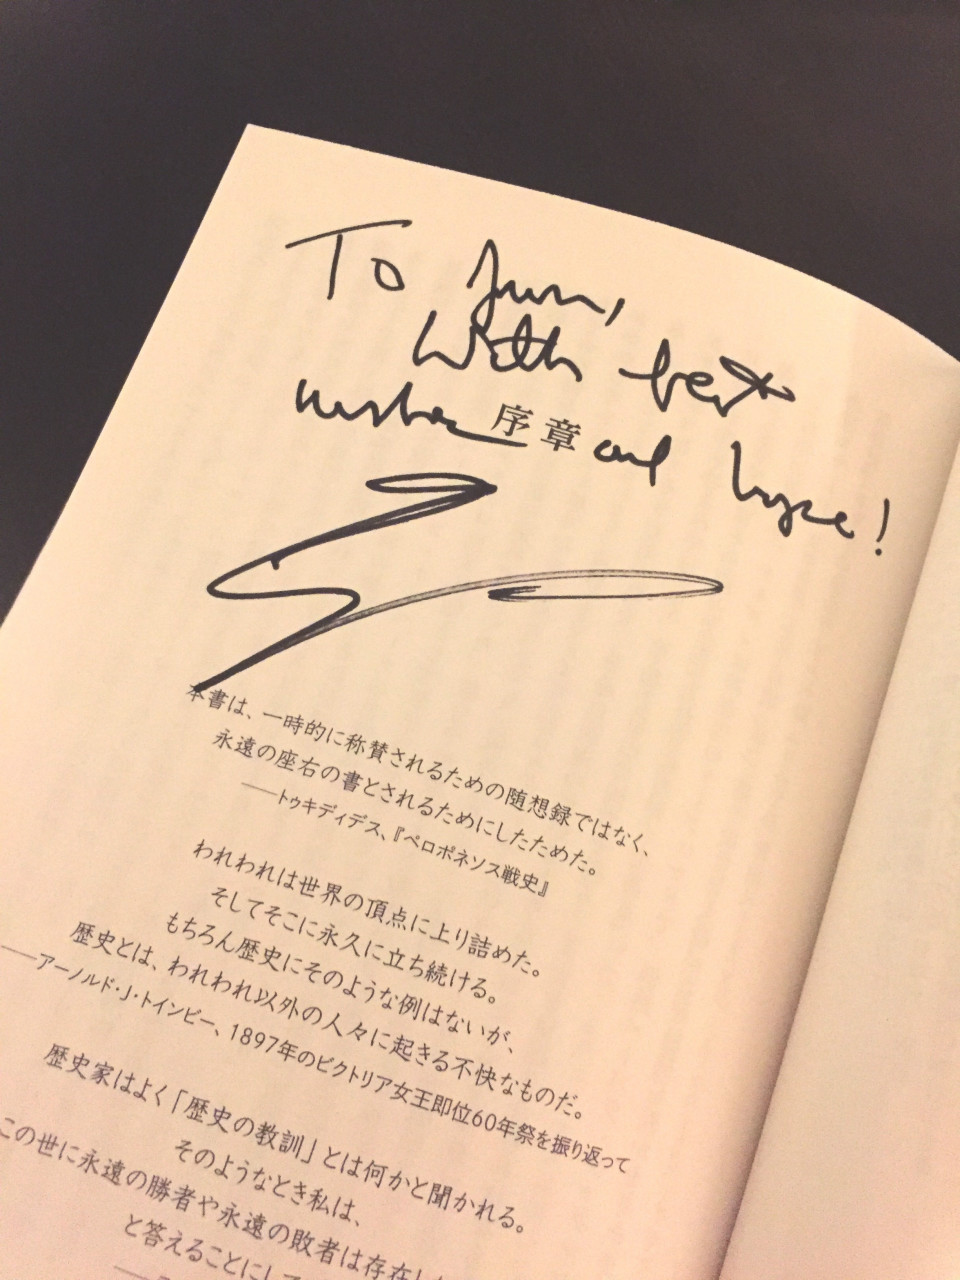 To Jun,
With best
wishes and hope!
序章
本書は、一時的に称賛されるための随想録ではなく、
永遠の座右の書とされるためにしたためた。
──トゥキディデス、『ペロポネソス戦史』
われわれは世界の頂点に上り詰めた。
そしてそこに永久に立ち続ける。
もちろん歴史にそのような例はないが、
歴史とは、われわれ以外の人々に起きる不快なものだ。
──アーノルド・J・トインビー、1897年のビクトリア女王即位60年祭を振り返って
歴史家はよく「歴史の教訓」とは何かと聞かれる。
そのようなとき私は、
この世に永遠の勝者や永遠の敗者は存在し
と答えることにして